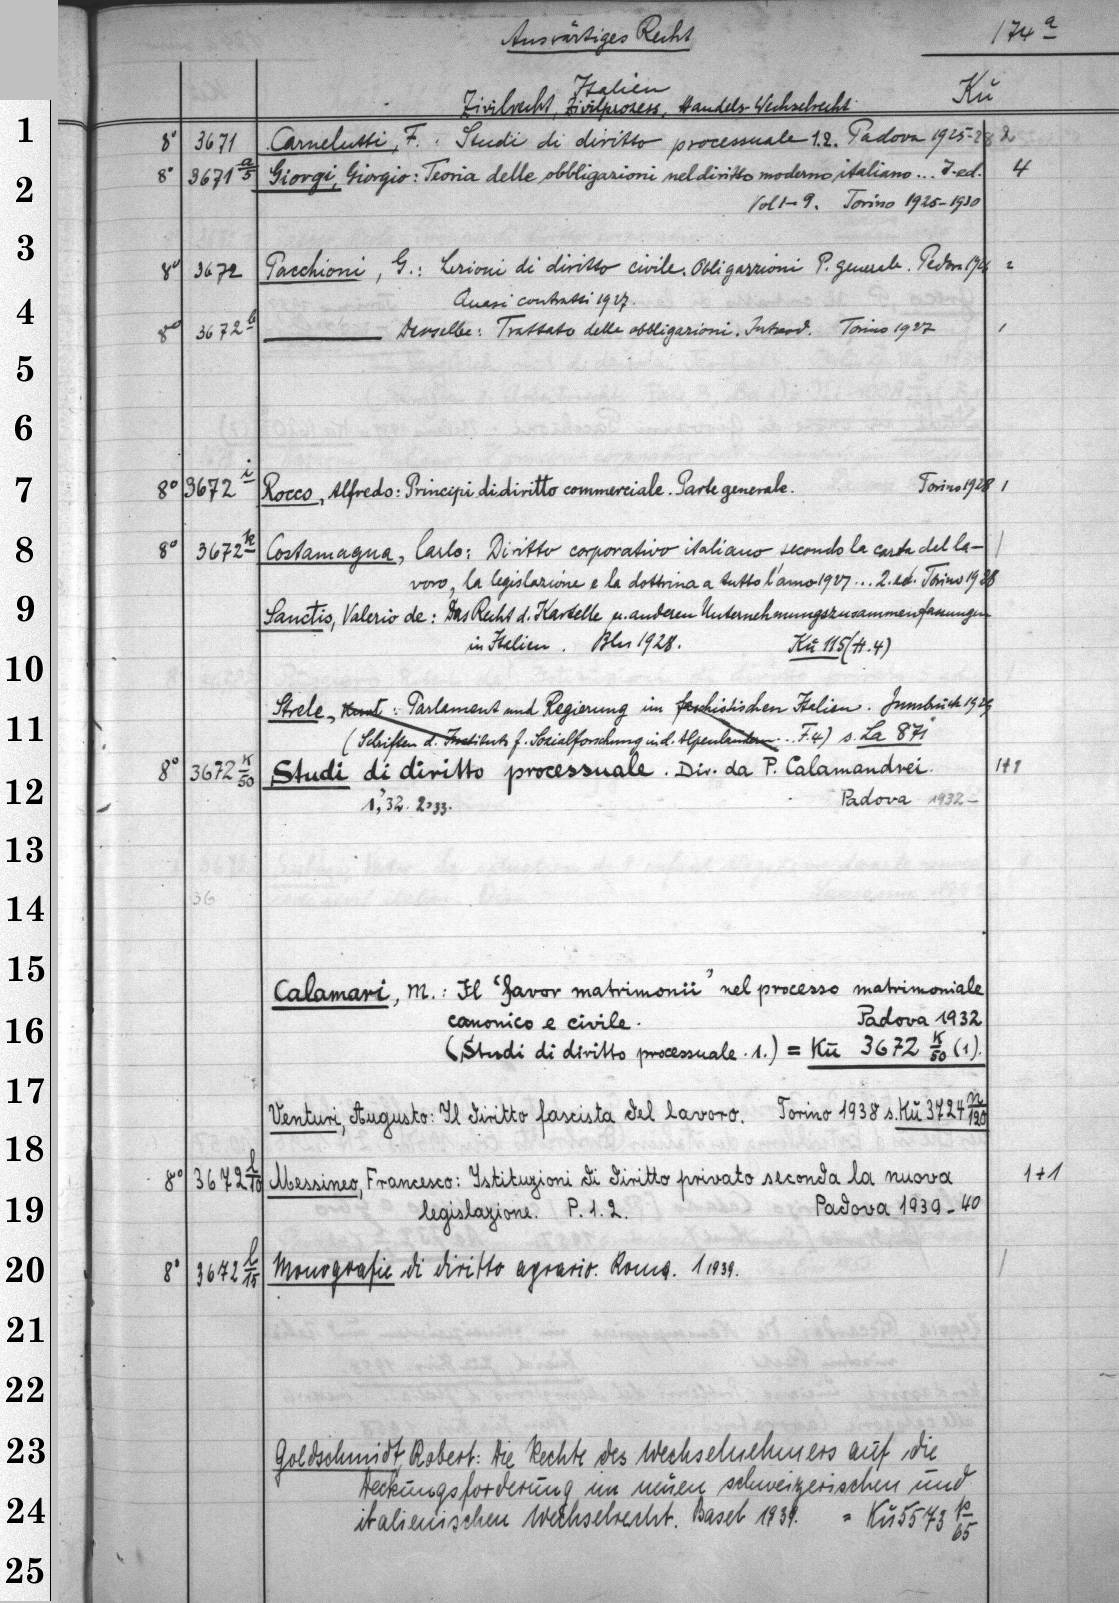 Auswärtiges Recht 174 a
Italien
Zivilrecht, Zivilprozess, Handels-Wechselrecht Kü
1
8° 3671 Carnelutti, F. : Studi di diritto processuale 1.2. Padova 1925-28 2
8° 3671 a/5 Giorgi, Giorgio: Teoria delle obbligazioni nel diritto moderno italiano... 7. ed. 4
2
Vol 1-9. Torino 1925-1930
3
8° 3672 Pacchioni, G.: Lezioni di diritto civile. Obligazzioni P. generale. Padova 1926 2
Quasi contratti 1927.
4
8° 3672 b Derselbe: Trattato delle obbligazioni. Introd. Torino 1927 1
5
6
7
8° 3672 i Rocco, Alfredo: Principi di diritto commerciale. Parte generale. Torino 1928 1
8
8° 3672 k Costamagna, Carlo: Diritto corporativo italiano secondo la carta del la- 1
voro, la legislazione e la dottrina a tutto l'anno 1927... 2. ed. Torino 1928
9
Sanctis, Valerio de: Das Recht d. Kartelle u. anderen Unternehmungszusammenfassungen
in Italien. Bln 1928. Kü 115 (H. 4)
10
Strele, Kurt: Parlament und Regierung im faschistischen Italien. Innsbruck 1929
11
(Schriften d. Instituts f. Sozialforschung in d. Alpenländern... F. 4) s. La 871
8° 3672 K/50 Studi di diritto processuale. Dir. da P. Calamandrei. 1+1
12
1,'32. 2,33. Padova 1932-
13
36
14
15
Calamari, M.: Il "favor matrimonii" nel processo matrimoniale
16
canonico e civile. Padova 1932
(Studi di diritto processuale. 1.) = Kü 3672 K/50 (1).
17
Venturi, Augusto: Il diritto fascista del lavoro. Torino 1938 s. Kü 3724 n/120
18
8° 3672 l/10 Messineo, Francesco: Istituzioni di diritto privato seconda la nuova 1+1
19
legislazione. P. 1. 2. Padova 1939-40
20
8° 3672 l/15 Monografie di diritto agrario. Roma. 1 1939. 1
21
22
23
Goldschmidt, Robert: Die Rechte des Wechselnehmers auf die
Deckungsforderung im neuen schweizerischen und
24
italienischen Wechselrecht. Basel 1939. = Kü 5573 k/65
25